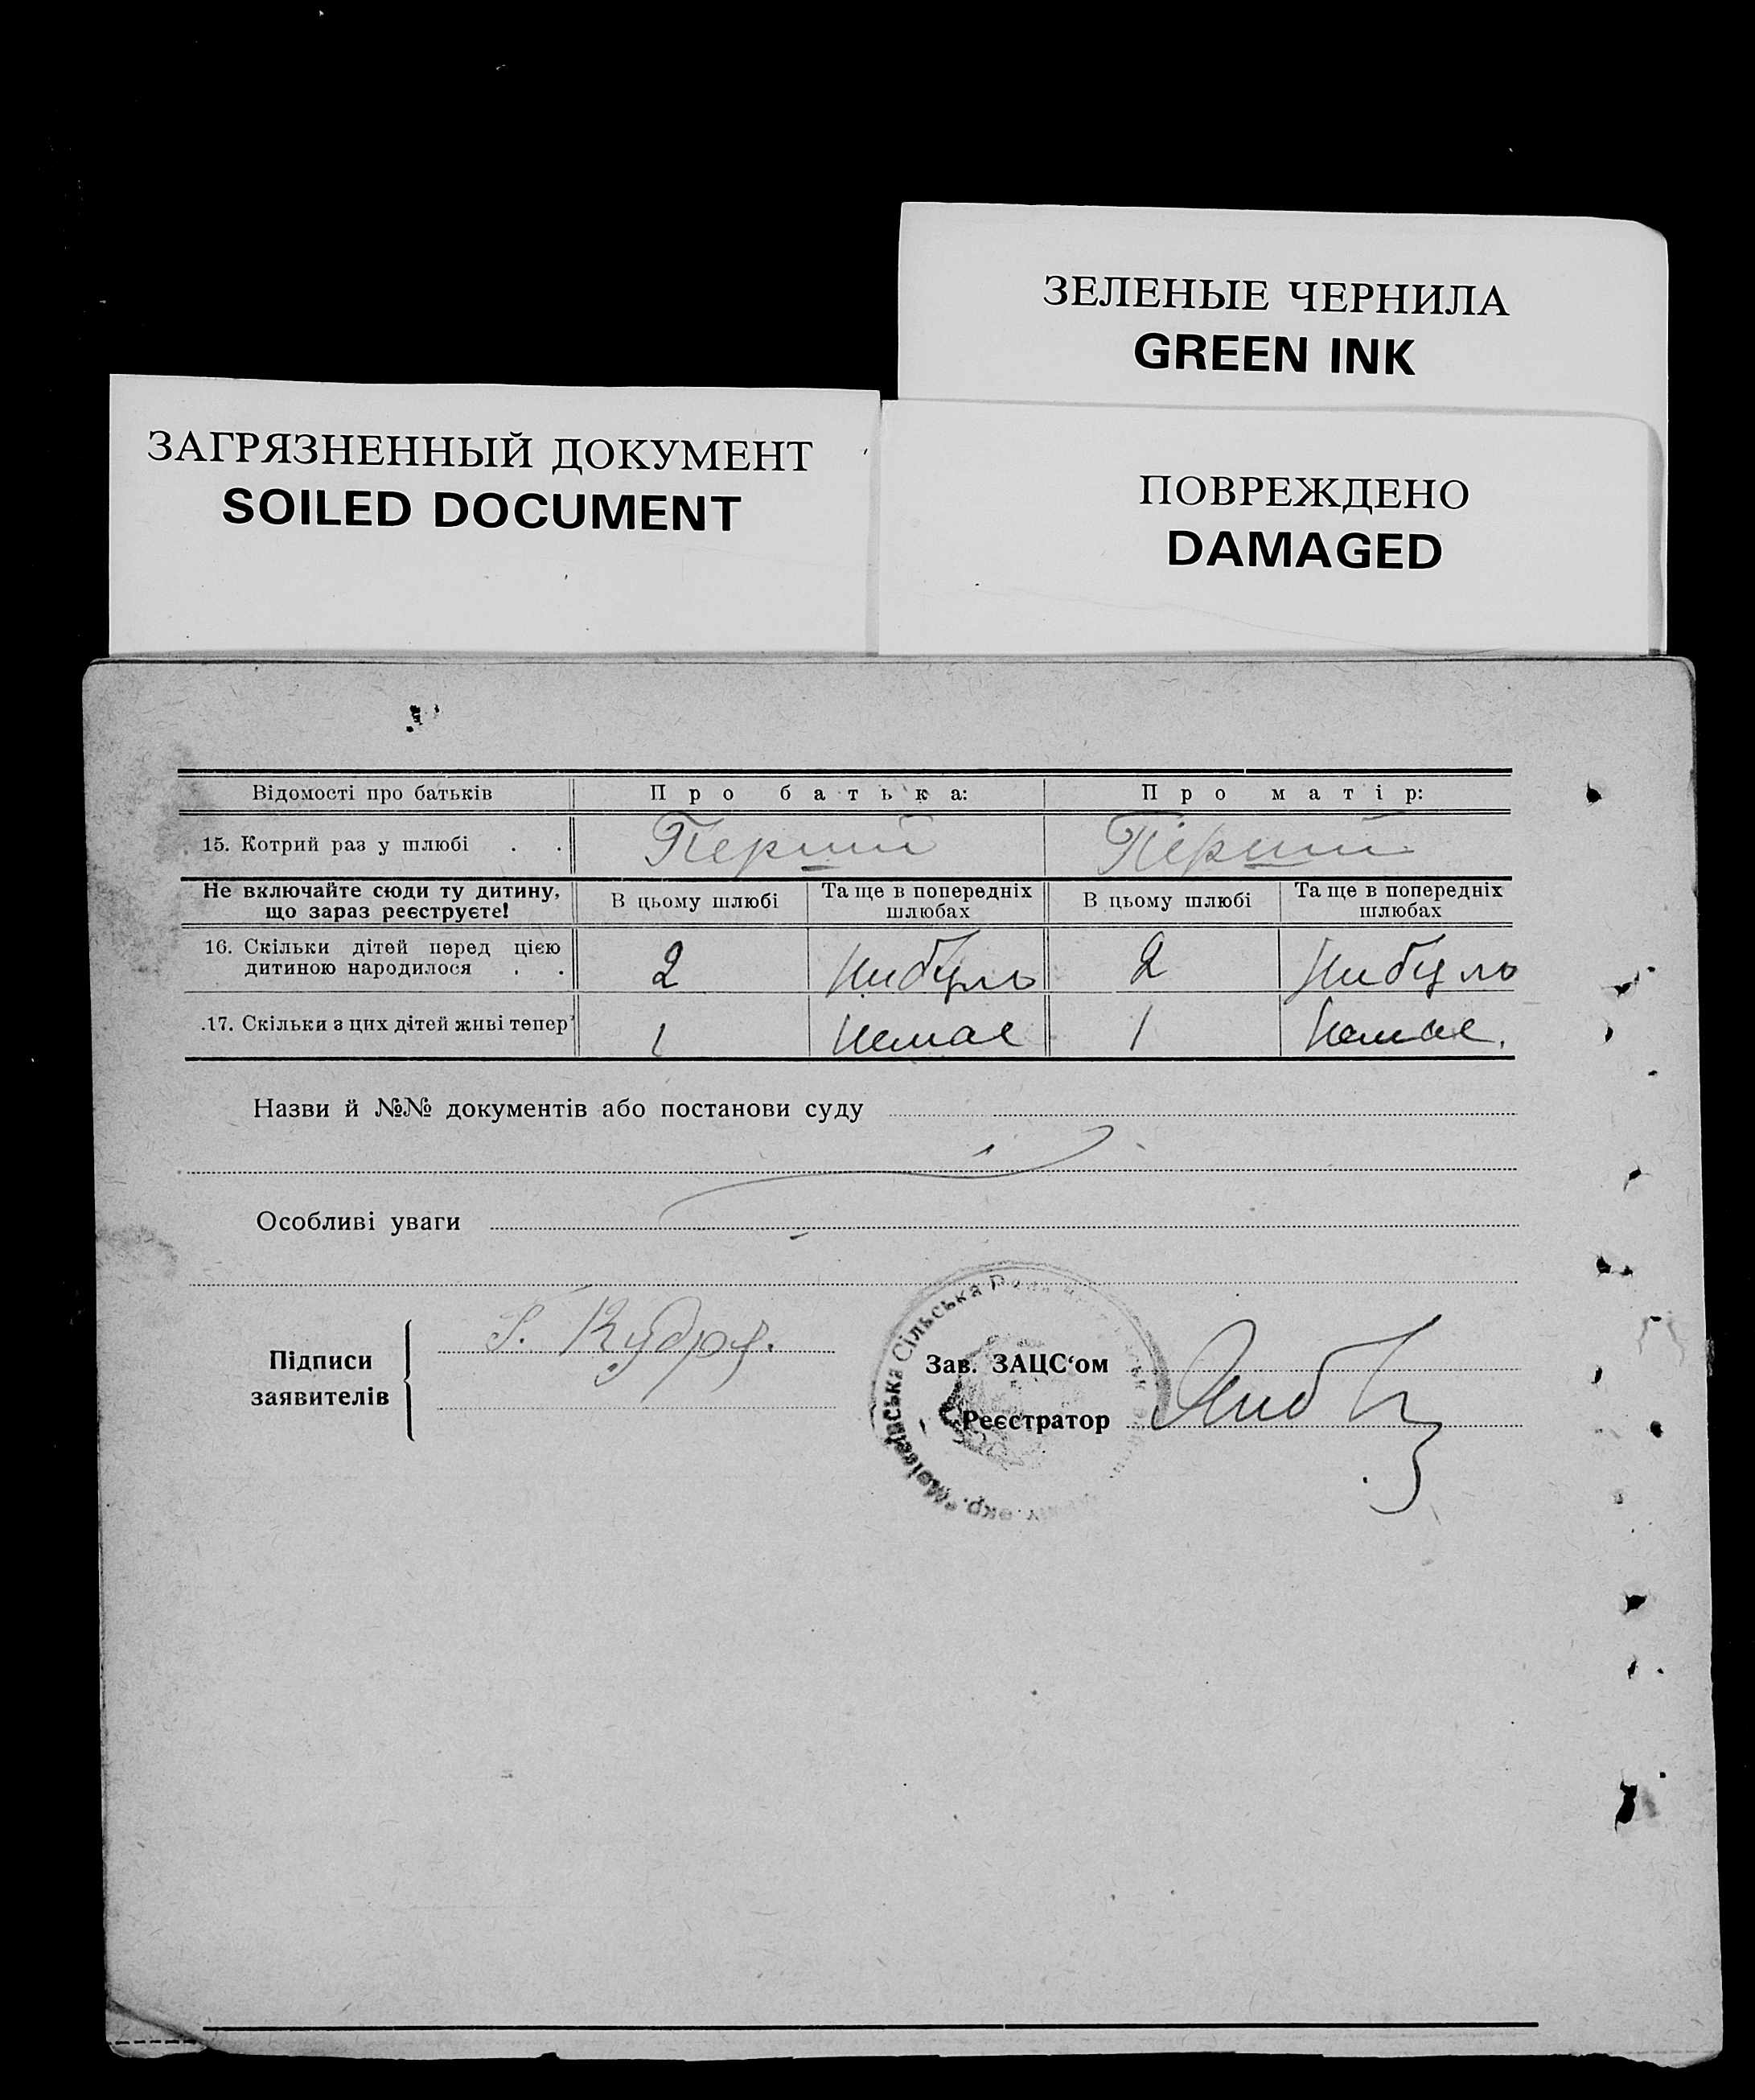 ЗЕЛЕНЫЕ ЧЕРНИЛА
GREEN INK
ЗАГРЯЗНЕННЫЙ ДОКУМЕНТ
SOILED DOCUMENT
ПОВРЕЖДЕНО
DAMAGED
Відомості про батьків Про батька: Про матір:
15. Котрий раз у шлюбі . . Перший Перший
Не включайте сюди ту дитину, що зараз реєструєте! В цьому шлюбі Та ще в попередніх шлюбах В цьому шлюбі Та ще в попередніх шлюбах
16. Скільки дітей перед цією дитиною народилося . . 2 Нибуль 2 Нибуль
17. Скільки з цих дітей живі тепер 1 Немає 1 Немає.
Назви й №№ документів або постанови суду
Особливі уваги
Підписи заявителів
Зав. ЗАЦС‘ом
Реєстратор
Сільська
окр.